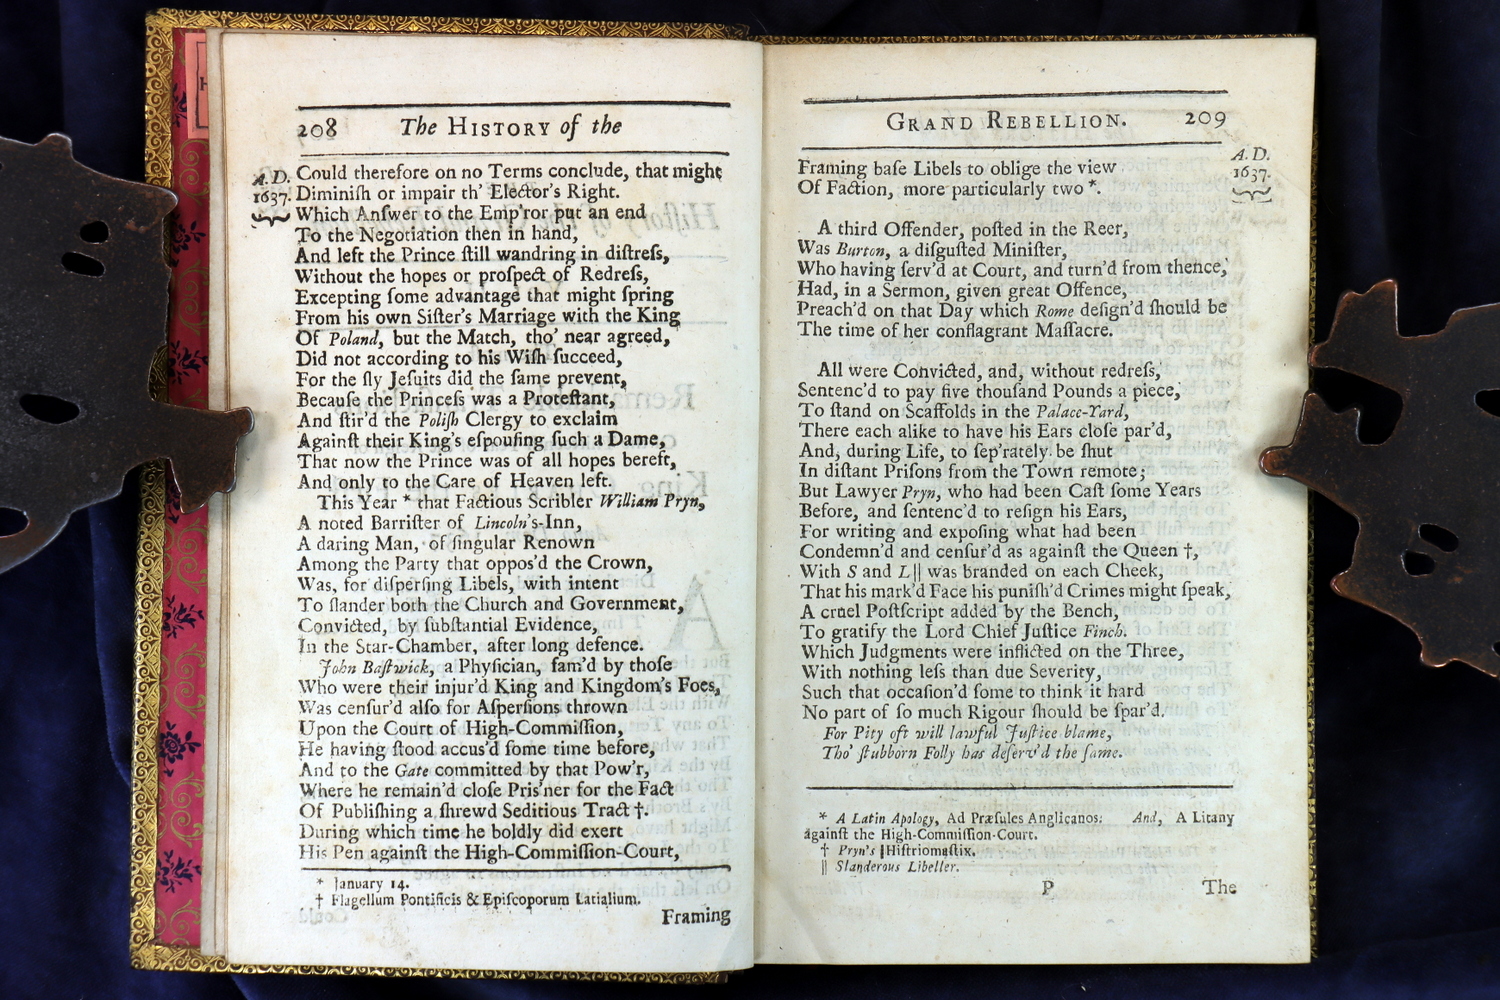 208 The HISTORY of the
A. D.
1637.
Could therefore on no Terms conclude, that might
Diminiſh or impair th' Elector's Right.
Which Anſwer to the Emp'ror put an end
To the Negotiation then in hand,
And left the Prince ſtill wandring in diſtreſs,
Without the hopes or proſpect of Redreſs,
Excepting ſome advantage that might ſpring
From his own Siſter's Marriage with the King
Of Poland, but the Match, tho' near agreed,
Did not according to his Wiſh ſucceed,
For the ſly Jeſuits did the ſame prevent,
Becauſe the Princeſs was a Proteſtant,
And ſtir'd the Poliſh Clergy to exclaim
Againſt their King's eſpouſing ſuch a Dame,
That now the Prince was of all hopes bereft,
And only to the Care of Heaven left.
This Year * that Factious Scribler William Pryn,
A noted Barriſter of Lincoln's-Inn,
A daring Man, of ſingular Renown
Among the Party that oppos'd the Crown,
Was, for diſperſing Libels, with intent
To ſlander both the Church and Government,
Convicted, by ſubſtantial Evidence,
In the Star-Chamber, after long defence.
John Baſtwick, a Phyſician, fam'd by thoſe
Who were their injur'd King and Kingdom's Foes,
Was cenſur'd alſo for Aſperſions thrown
Upon the Court of High-Commiſſion,
He having ſtood accus'd ſome time before,
And to the Gate committed by that Pow'r,
Where he remain'd cloſe Pris'ner for the Fact
Of Publiſhing a ſhrewd Seditious Tract †.
During which time he boldly did exert
His Pen againſt the High-Commiſſion-Court,
* January 14.
† Flagellum Pontificis & Epiſcoporum Latialium.
Framing
GRAND REBELLION. 209
A. D.
1637.
Framing baſe Libels to oblige the view
Of Faction, more particularly two *.
A third Offender, poſted in the Reer,
Was Burton, a diſguſted Miniſter,
Who having ſerv'd at Court, and turn'd from thence,
Had, in a Sermon, given great Offence,
Preach'd on that Day which Rome deſign'd ſhould be
The time of her conflagrant Maſſacre.
All were Convicted, and, without redreſs,
Sentenc'd to pay five thouſand Pounds a piece,
To ſtand on Scaffolds in the Palace-Yard,
There each alike to have his Ears cloſe par'd,
And, during Life, to ſep'rately be ſhut
In diſtant Priſons from the Town remote;
But Lawyer Pryn, who had been Caſt ſome Years
Before, and ſentenc'd to reſign his Ears,
For writing and expoſing what had been
Condemn'd and cenſur'd as againſt the Queen †,
With S and L || was branded on each Cheek,
That his mark'd Face his puniſh'd Crimes might ſpeak,
A cruel Poſtſcript added by the Bench,
To gratify the Lord Chief Juſtice Finch.
Which Judgments were inflicted on the Three,
With nothing leſs than due Severity,
Such that occaſion'd ſome to think it hard
No part of ſo much Rigour ſhould be ſpar'd.
For Pity oft will lawful Juſtice blame,
Tho' ſtubborn Folly has deſerv'd the ſame.
* A Latin Apology, Ad Præſules Anglicanos: And, A Litany
againſt the High-Commiſſion-Court.
† Pryn's Hiſtriomaſtix.
|| Slanderous Libeller.
P The